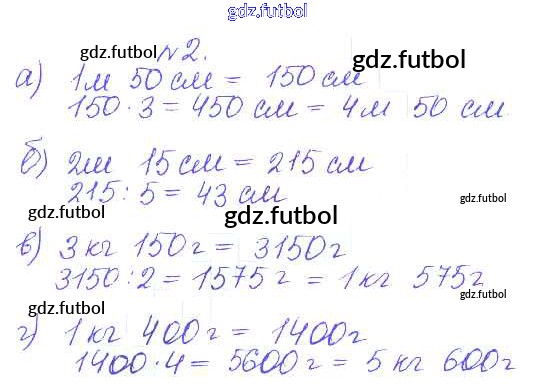 gdz.futbol
gdz.futbol №2. gdz.futbol
а) 1м 50 см = 150 см
150 · 3 = 450 см = 4 м 50 см
gdz.futbol
б) 2м 15 см = 215 см
215 : 5 = 43 см gdz.futbol
gdz.futbol gdz.futbol
в) 3 кг 150 г = 3150 г
gdz.futbol
3150 : 2 = 1575 г = 1 кг 575 г
gdz.futbol gdz.futbol gdz.futbol
г) 1 кг 400 г = 1400 г
1400 · 4 = 5600 г = 5 кг 600 г